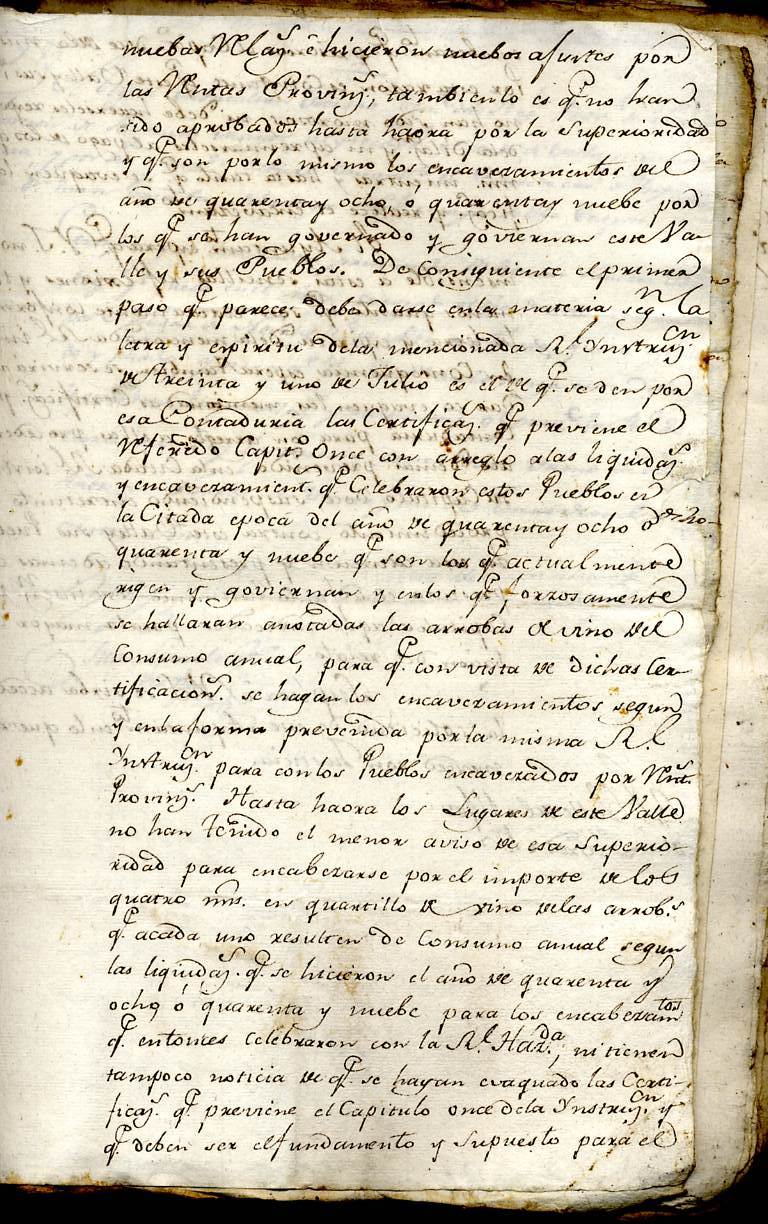 nuebas Relaȷ.s è hicieron nuebos ajustes por
las Rentas Provinȷ.s, tambien lo es q.e no han
sido aprobados hasta haora por la Superioridad
y q.e son por lo mismo los encavezamientos del
año de quarenta y ocho, o quarenta y nuebe por
los q.e se han governado y goviernan este Va-
lle y sus Pueblos. De consiguiente el primer
paso q.e parece debe darse en la materia seg.n la
letra y espiritu dela mencionada R.l Ynstruȷ.cn
de treinta y uno de Julio es el de q.e se den por
esa Contaduria las Certificaȷ.s q.e previene el
Referedo Capit.o Once con arreglo alas liquidaȷ.s
y encavezamient.s q.e Celebraron estos Pueblos en
la Citada epoca del año de quarenta y ocho o
quarenta y nuebe q.e son los q.e actualmente
rigen y goviernan y en los q.e forzosamente
se hallaran anotadas las arrobas de vino del
Consumo anual, para q.e con vista de dichas Cer-
tificacion.s se hagan los encavezamientos segun
y en la forma prevenida por la misma R.l
Ynstruȷ.cn para con los Pueblos encavezados por Rent.s
Provinȷ.s Hasta haora los Lugares de este Valle
no han tenido el menor aviso de esa Superio-
ridad para encabezarse por el importe de los
quatro mrs. en quartillo de vino delas arrob.s
q.e acada uno resulten de Consumo anual segun
las liquidaȷ.s q.e se hicieron el año de quarenta y
ocho, ó quarenta y nuebe para los encabezam.tos
q.e entonces celebraron con la R.l Haz.da, ni tienen
tampoco noticia de q.e se hayan evaquado las Certi-
ficaȷ.s q.e previene el Capitulo once dela Ynstruȷ.cn y
q.e deben ser el fundamento y Supuesto para el